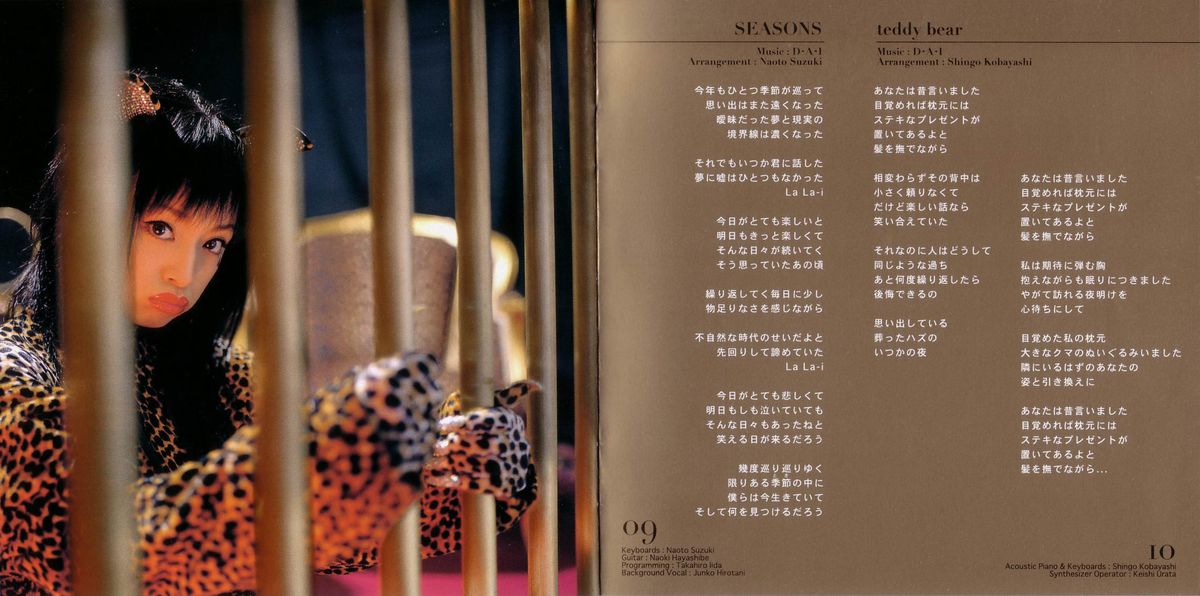 SEASONS
Music : D・A・I
Arrangement : Naoto Suzuki
今年もひとつ季節が巡って
思い出はまた遠くなった
曖昧だった夢と現実の
境界線は濃くなった
それでもいつか君に話した
夢に嘘はひとつもなかった
La La-i
今日がとても楽しいと
明日もきっと楽しくて
そんな日々が続いてく
そう思っていたあの頃
繰り返してく毎日に少し
物足りなさを感じながら
不自然な時代のせいだよと
先回りして諦めていた
La La-i
今日がとても悲しくて
明日もしも泣いていても
そんな日々もあったねと
笑える日が来るだろう
幾度巡り巡りゆく
限りある季節の中に
僕らは今生きていて
そして何を見つけるだろう
09
Keyboards : Naoto Suzuki
Guitar : Naoki Hayashibe
Programming : Takahiro Iida
Background Vocal : Junko Hirotani
teddy bear
Music : D・A・I
Arrangement : Shingo Kobayashi
あなたは昔言いました
目覚めれば枕元には
ステキなプレゼントが
置いてあるよと
髪を撫でながら
相変わらずその背中は
小さく頼りなくて
だけど楽しい話なら
笑い合えていた
それなのに人はどうして
同じような過ち
あと何度繰り返したら
後悔できるの
思い出している
葬ったハズの
いつかの夜
あなたは昔言いました
目覚めれば枕元には
ステキなプレゼントが
置いてあるよと
髪を撫でながら
私は期待に弾む胸
抱えながらも眠りにつきました
やがて訪れる夜明けを
心待ちにして
目覚めた私の枕元
大きなクマのぬいぐるみいました
隣にいるはずのあなたの
姿と引き換えに
あなたは昔言いました
目覚めれば枕元には
ステキなプレゼントが
置いてあるよと
髪を撫でながら…
10
Acoustic Piano & Keyboards : Shingo Kobayashi
Synthesizer Operator : Keishi Urata